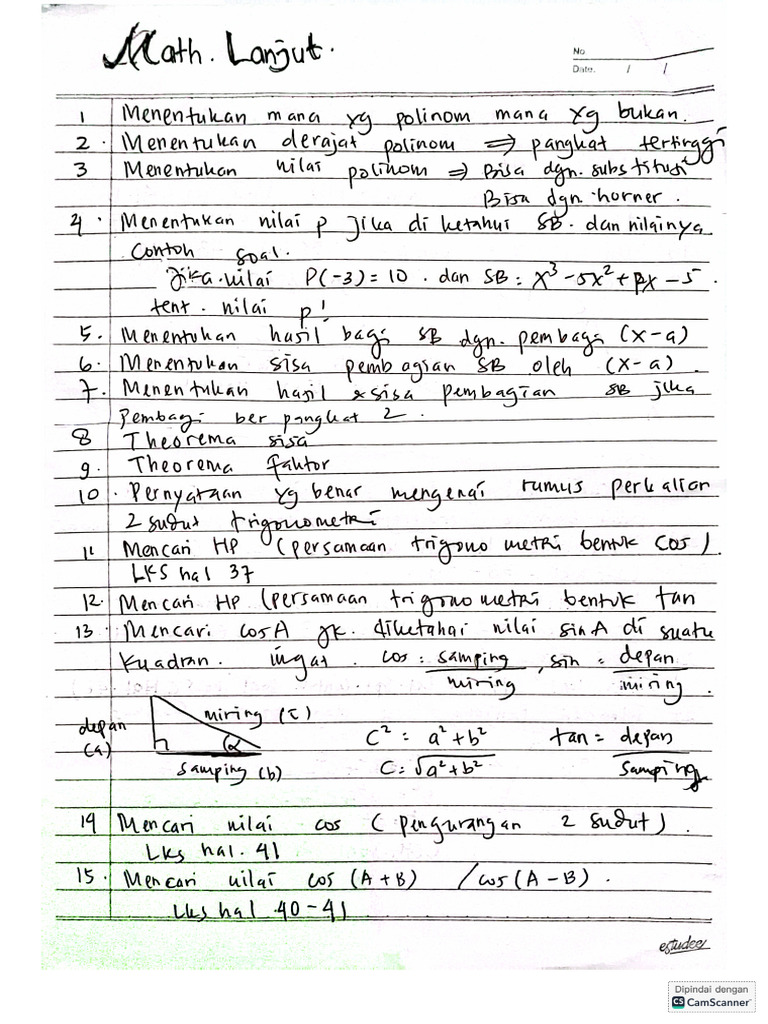 Math. Lanjut.
No
Date. / /
1 Menentukan mana yg polinom mana yg bukan.
2. Menentukan derajat polinom ⇒ pangkat tertinggi
3 Menentukan nilai polinom ⇒ Bisa dgn. substitusi
Bisa dgn. horner.
4. Menentukan nilai p jika di ketahui SB. dan nilainya
Contoh soal.
Jika nilai P(-3) = 10 . dan SB : x³ - 5x² + px - 5 .
tent. nilai p!
5. Menentukan hasil bagi SB dgn. pembagi (x-a)
6. Menentukan sisa pembagian SB oleh (x-a)
7. Menentukan hasil & sisa pembagian SB jika
Pembagi ber pangkat 2 .
8 Theorema sisa
9. Theorema faktor
10 . Pernyataan yg benar mengenai rumus perkalian
2 sudut trigonometri
11 Mencari HP (persamaan trigono metri bentuk cos)
LKS hal 37
12. Mencari HP (persamaan trigono metri bentuk tan
13. Mencari cos A jk. diketahui nilai sin A di suatu
Kuadran. ingat. cos : samping/miring , sin = depan/miring .
depan (a) miring (c) α samping (b)
C² = a² + b² tan = depan/samping
C = √a² + b²
14 Mencari nilai cos (pengurangan 2 sudut) .
Lks hal. 41
15. Mencari nilai cos (A + B) / cos (A - B) .
Lks hal 40 - 41
estudee
Dipindai dengan
CS CamScanner